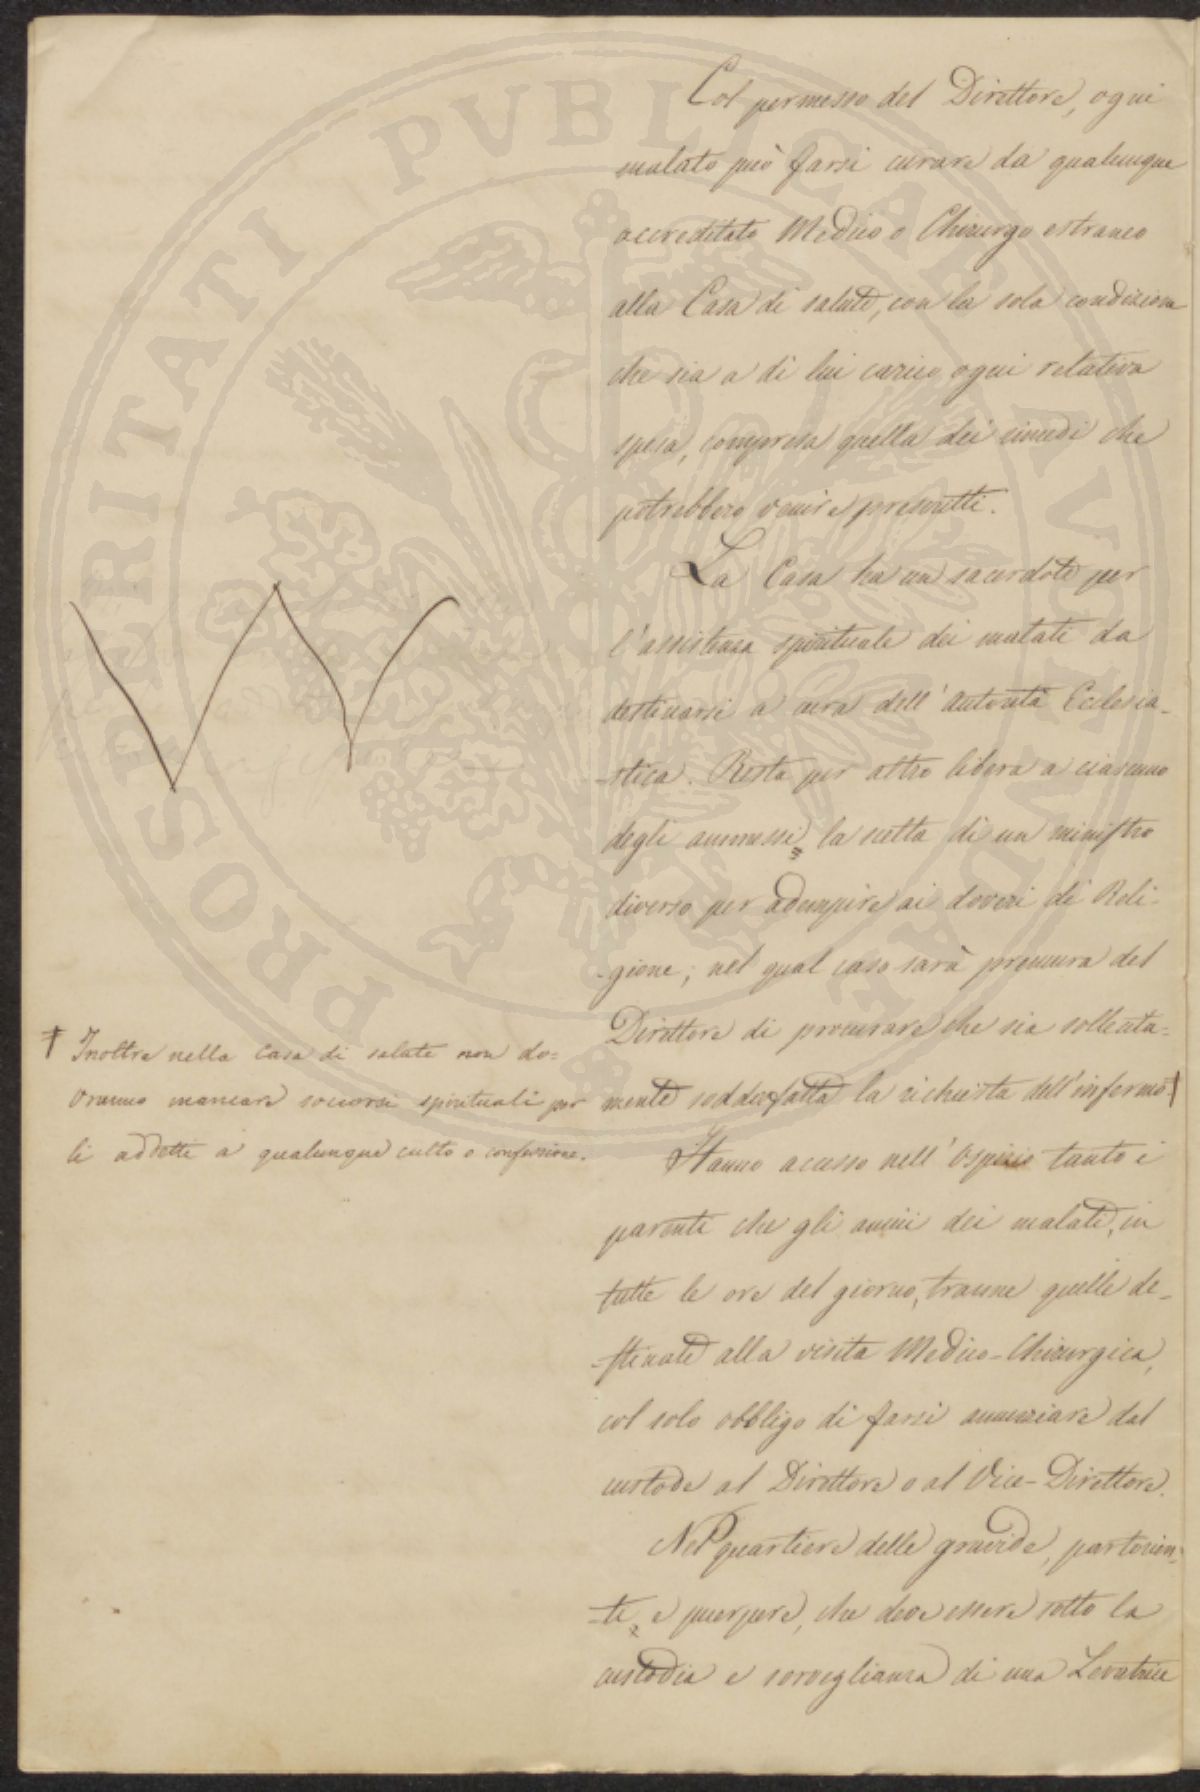 Col permesso del Direttore, ogni
malato può farsi curare da qualunque
accreditato Medico o Chirurgo estraneo
alla Casa di salute, con la sola condizione
che sia a di lui carico ogni relativa
spesa, compresa quella dei rimedi che
potrebbero venire prescritti.
La Casa ha un sacerdote per
l'assistenza spirituale dei malati da
destinarsi a cura dell'Autorità Ecclesia-
-stica. Resta per altro libera a ciascuno
degli ammessi, la scelta di un ministro
diverso per adempire ai doveri di Reli-
-gione; nel qual caso sarà premura del
Direttore di procurare che sia sollecita=
mente soddisfatta la richiesta dell'infermo †
† Inoltre nella Casa di salute non do=
vranno mancare soccorsi spirituali per
li addetti a qualunque culto o confessione.
Hanno accesso nell'Ospizio tanto i
parenti che gli amici dei malati, in
tutte le ore del giorno, tranne quelle de-
-stinate alla visita Medico-Chirurgica,
col solo obbligo di farsi annunziare dal
custode al Direttore o al Vice-Direttore.
Nel quartiere delle gravide, partorien-
-ti, e puerpere, che deve essere sotto la
custodia e sorveglianza di una Levatrice
PROSPERITATI PVBLICAE AVGENDAE